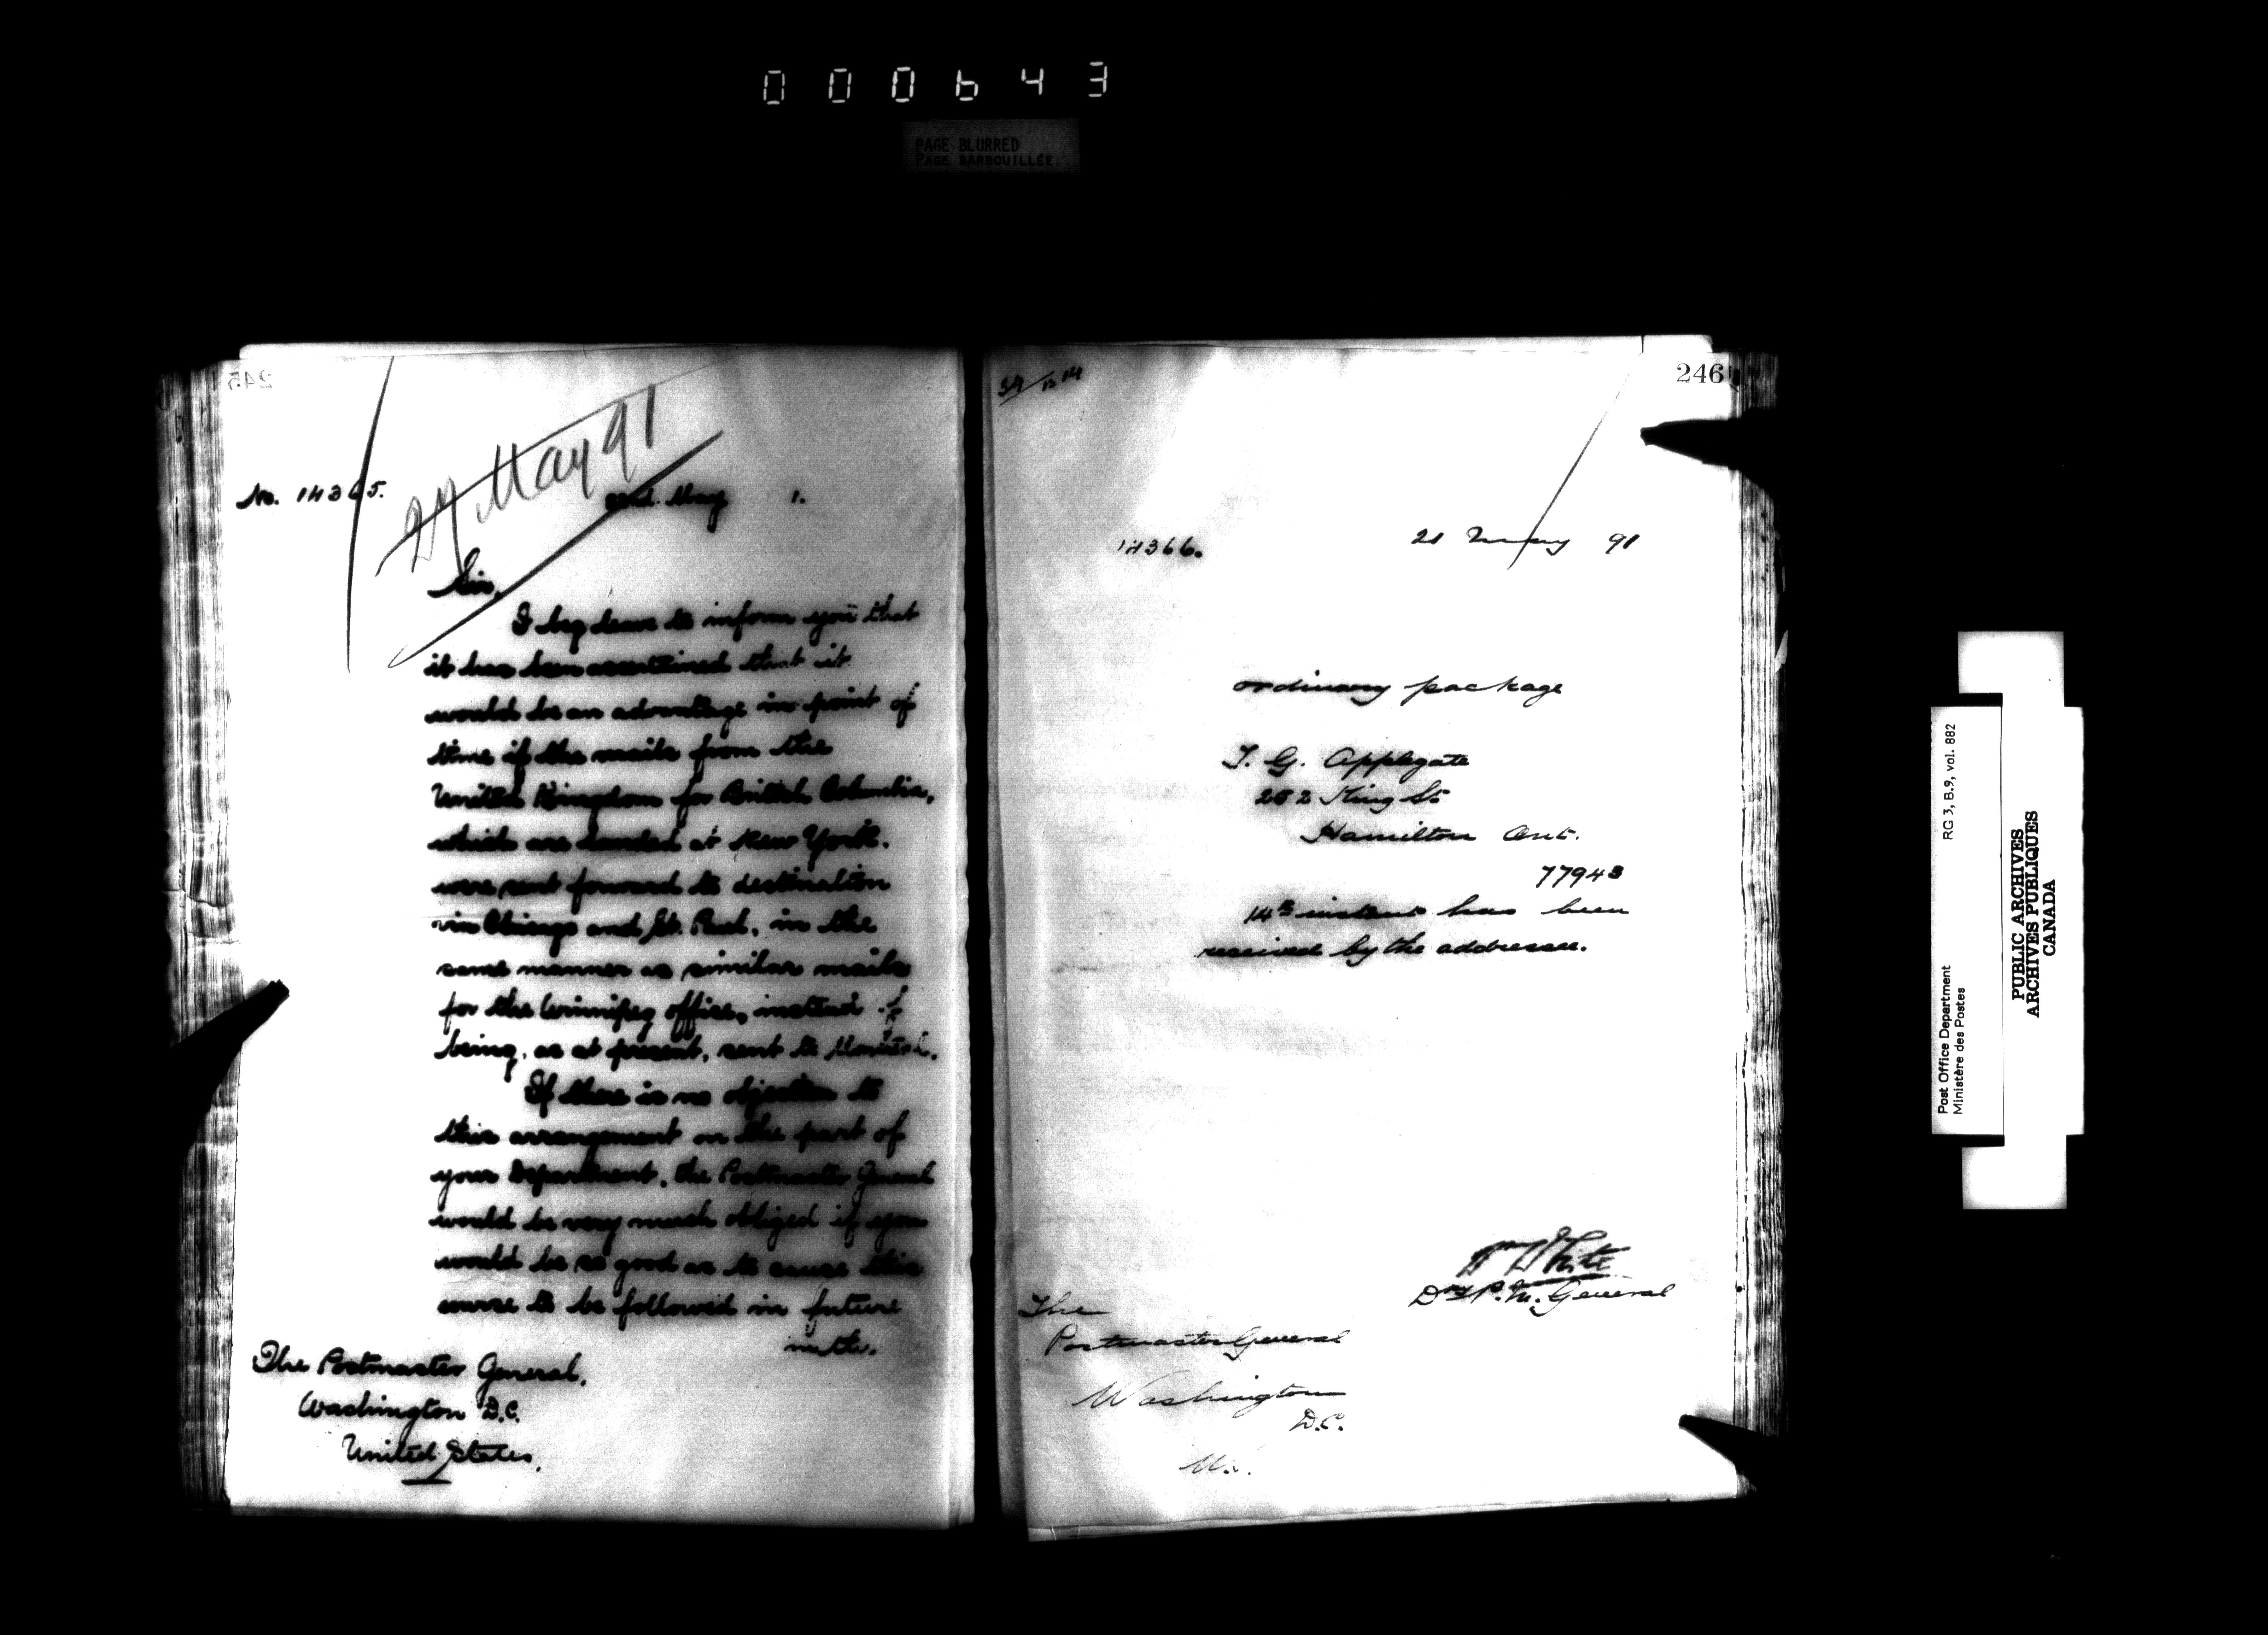 000643
PAGE BLURRED
PAGE BARBOUILLÉE
245
27 May 91
No. 14365.
22nd. May 1.
Sir,
I beg leave to inform you that
it has been ascertained that it
would be an advantage in point of
time if the mails from the
United Kingdom for British Columbia,
which are landed at New York.
were sent forward to destination
via Chicago and St. Paul, in the
same manner as similar mails
for the Winnipeg office, instead of
being, as at present, sent to Montreal.
If there is no objection to
this arrangement on the part of
your Department, the Postmaster General
would be very much obliged if you
would be so good as to cause this
course to be followed in future
The Postmaster General,
Washington D.C.
United States.
246
14366.
21 May 91
ordinary package
T. G. Applegate
262 King St
Hamilton Ont.
77943
14th instant has been
received by the addressee.
Wm White
Dy P.M. General
The
Postmaster General
Washington
D.C.
RG 3, B.9, vol. 882
Post Office Department
Ministère des Postes
PUBLIC ARCHIVES
ARCHIVES PUBLIQUES
CANADA